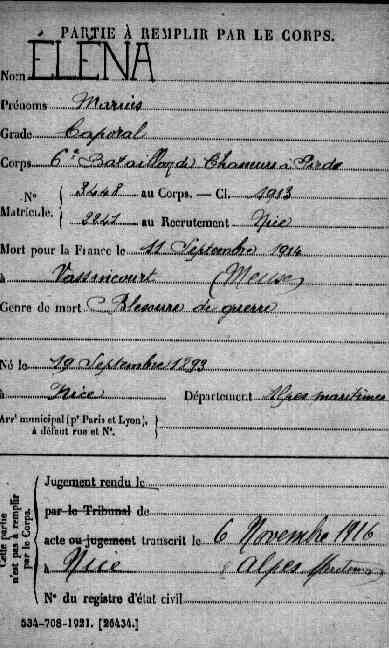 PARTIE À REMPLIR PAR LE CORPS.
Nom ÉLÉNA
Prénoms Marius
Grade Caporal
Corps 6e Bataillon de Chasseurs à Pieds
N° Matricule. { 3448 au Corps. — Cl. 1913
2241 au Recrutement Nice
Mort pour la France le 11 Septembre 1914
à Vassincourt (Meuse)
Genre de mort Blessure de guerre
Né le 19 Septembre 1893
à Nice Département Alpes maritimes
Arrt municipal (pr Paris et Lyon), à défaut rue et N°. }
Cette partie n'est pas à remplir par le Corps.
Jugement rendu le
par le Tribunal de
acte ou jugement transcrit le 6 Novembre 1916
à Nice Alpes Maritimes
N° du registre d'état civil
534-708-1921. [26434.]